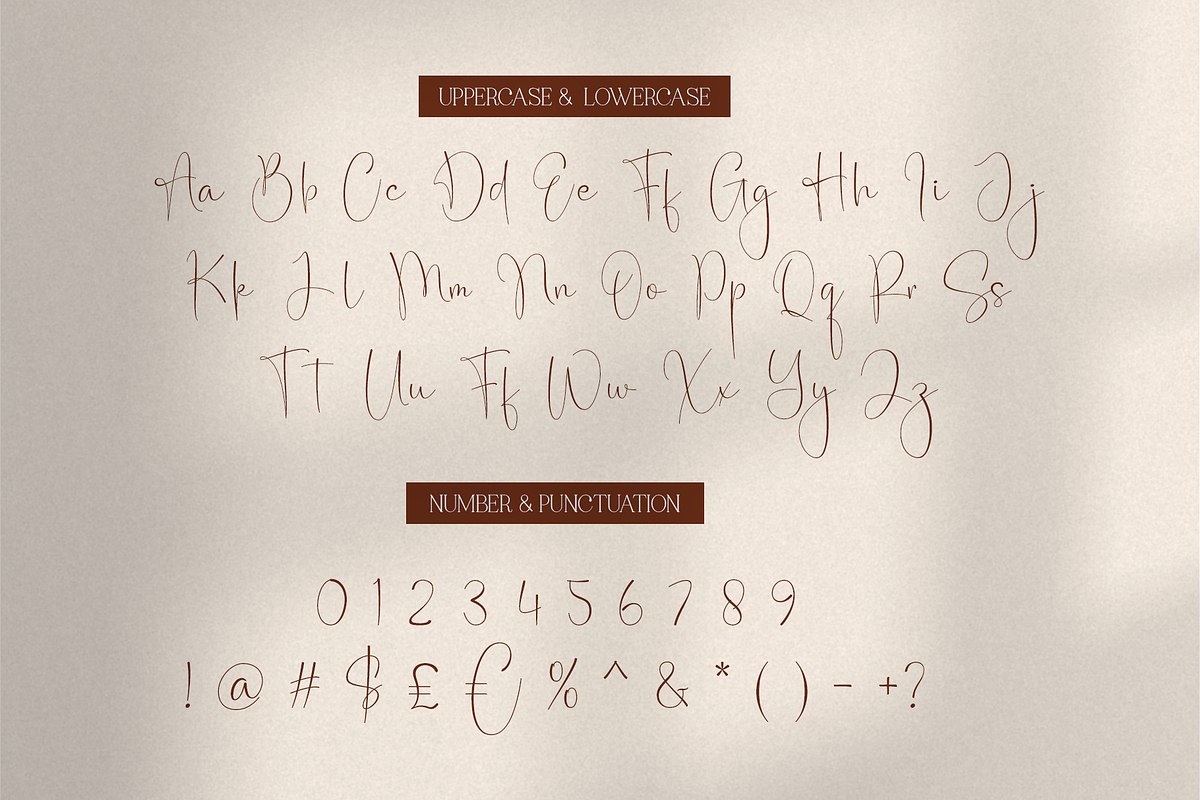 UPPERCASE & LOWERCASE
Aa Bb Cc Dd Ee Ff Gg Hh Ii Jj
Kk Ll Mm Nn Oo Pp Qq Rr Ss
Tt Uu Ff Ww Xx Yy Zz
NUMBER & PUNCTUATION
0 1 2 3 4 5 6 7 8 9
! @ # $ £ € % ^ & * ( ) - + ?